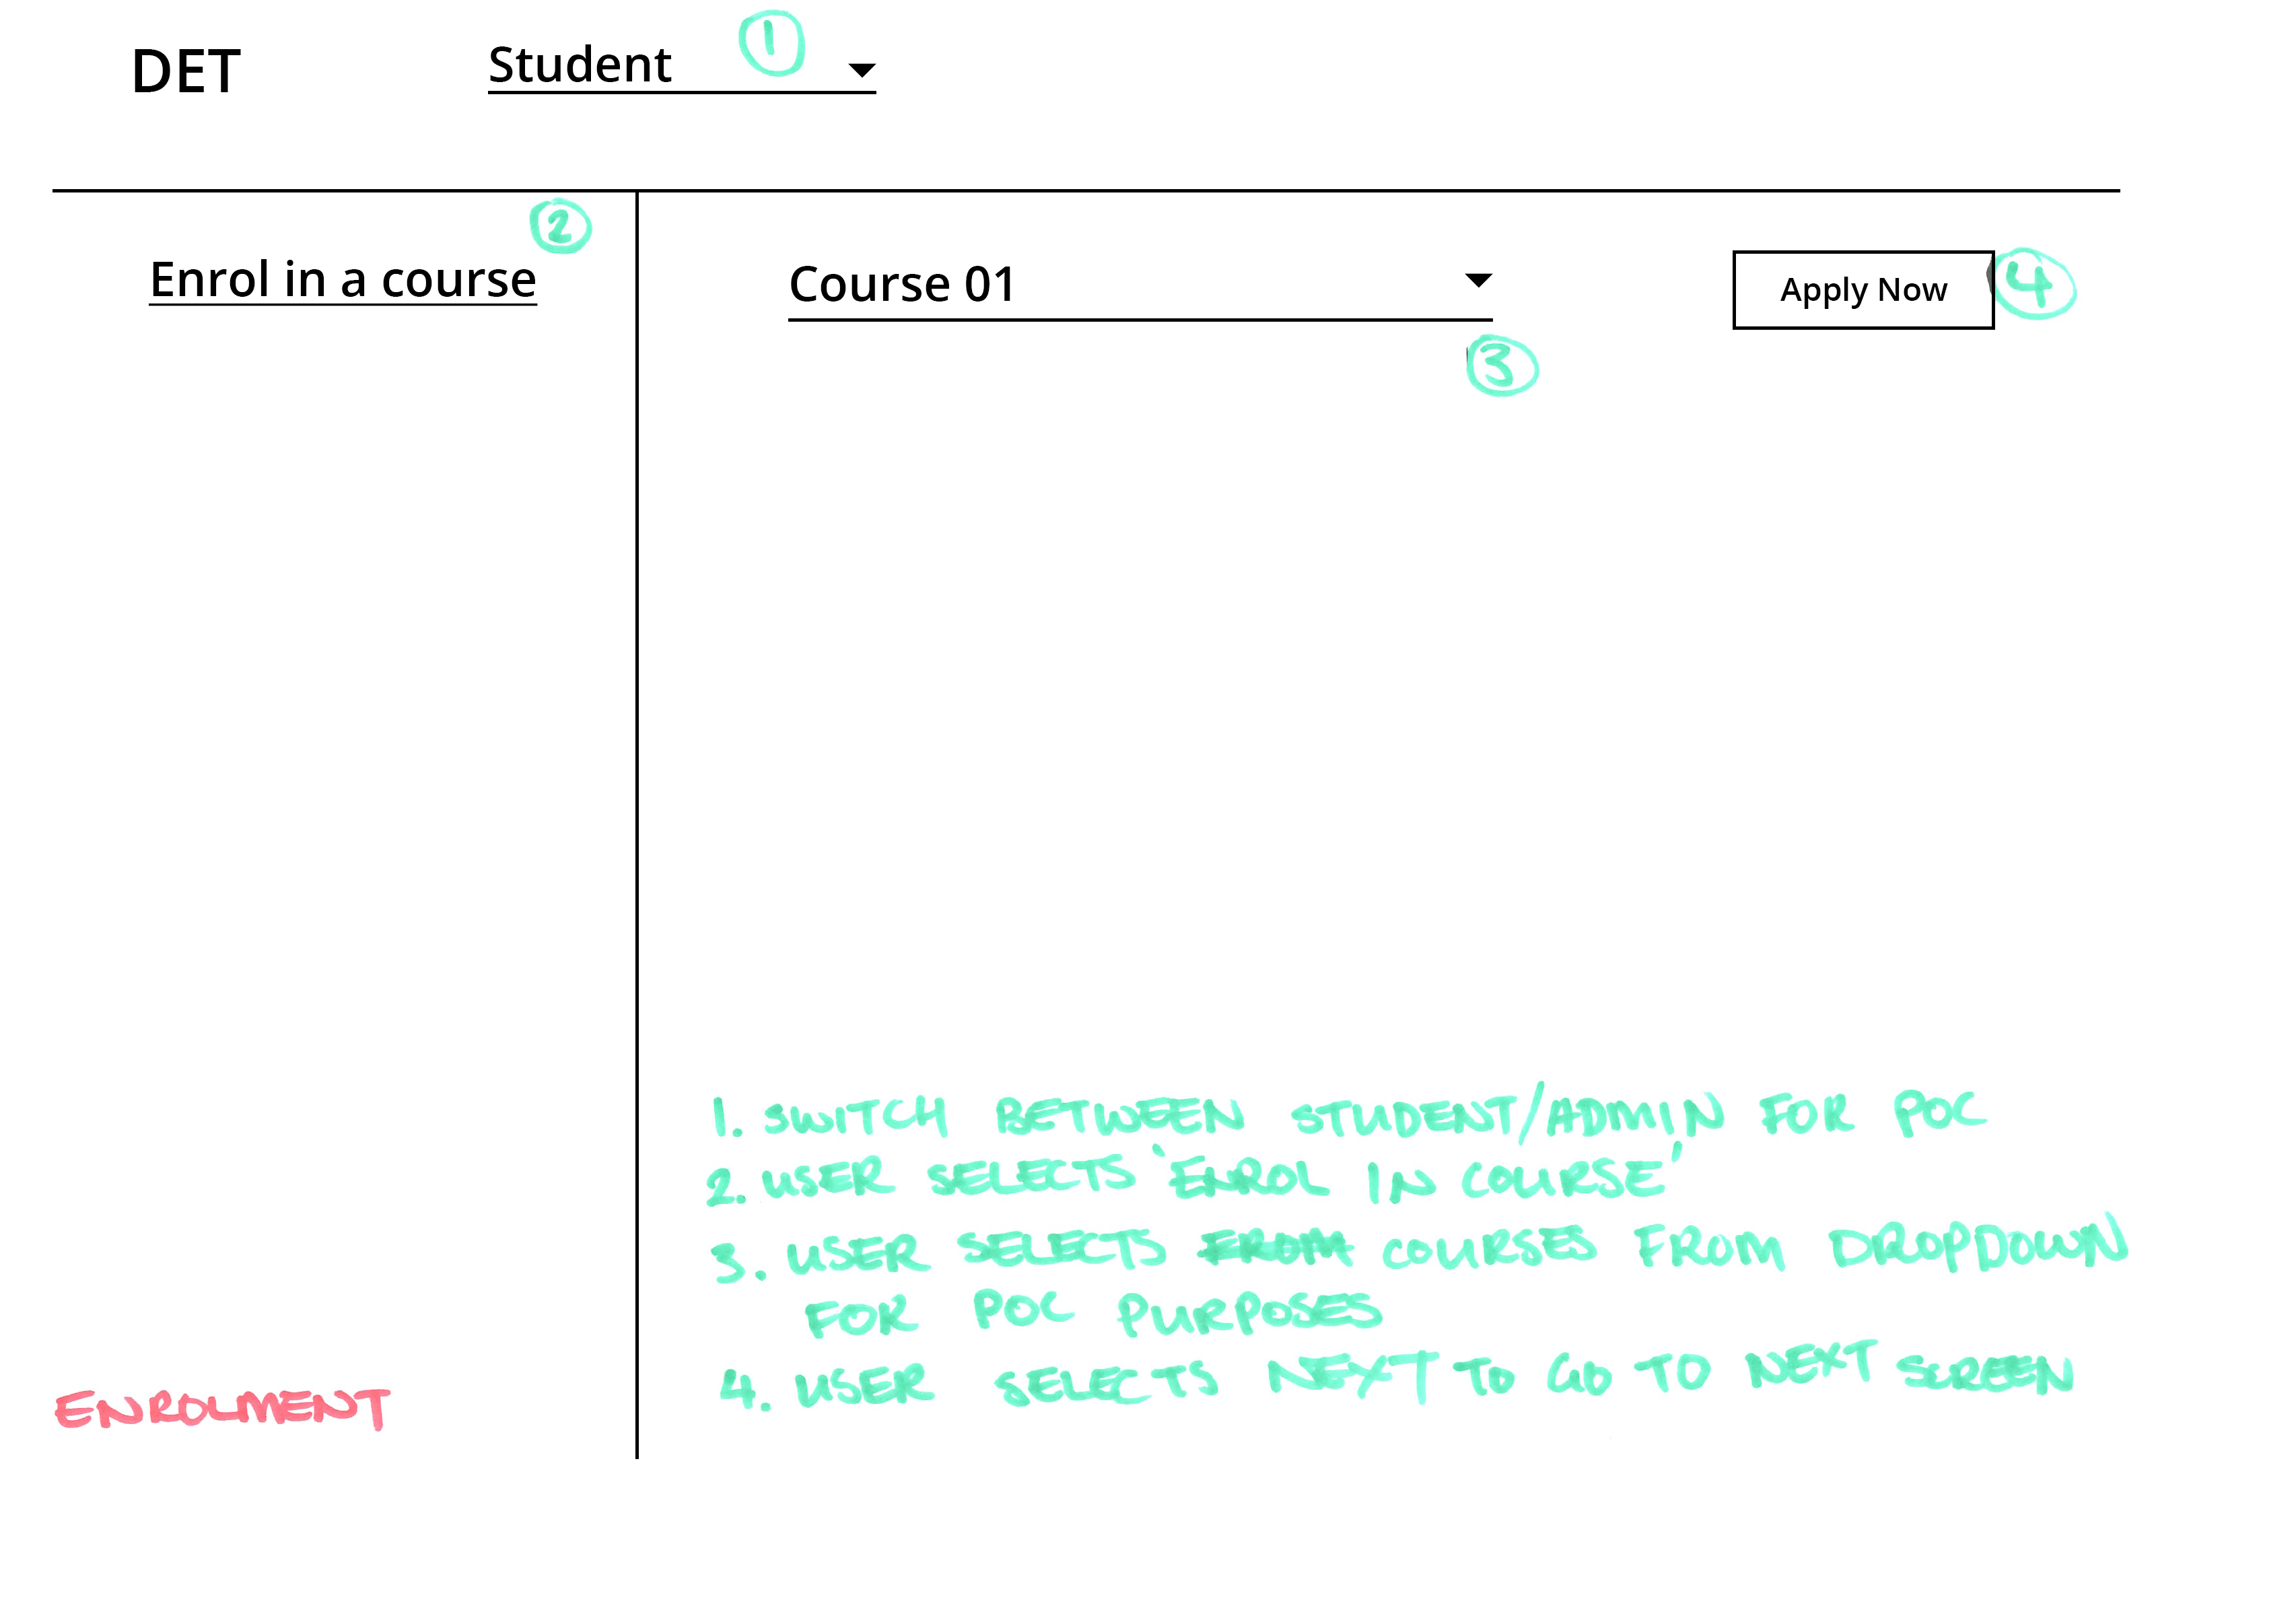 DET
Student
1
2
Enrol in a course
Course 01
Apply Now
4
3
1. SWITCH BETWEEN STUDENT/ADMIN FOR POC
2. USER SELECTS 'ENROL IN COURSE'
3. USER SELECTS FROM COURSES FROM DROPDOWN
FOR POC PURPOSES
4. USER SELECTS NEXT TO GO TO NEXT SREEN
ENROLMENT